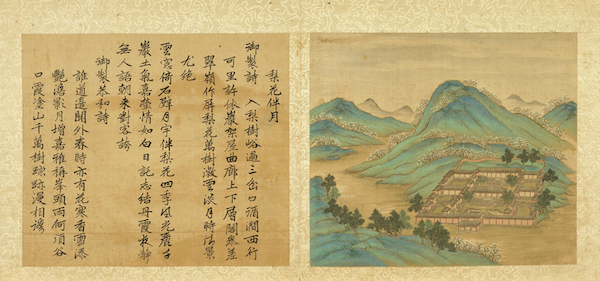 梨花伴月
御製詩 入梨樹峪過三岔口循澗西行
可里許依巖架屋曲廊上下層閣參差
翠嶺作屏梨花萬樹微雲淡月時清景
尤絕
雲窗倚石壁月宇伴梨花四季風光麗千
巖土氣嘉瑩情如白日託志結丹霞夜靜
無人語朝來對客誇
御製恭和詩
誰道邊關外春時亦有花寒香雪添
豔影月增嘉雅稱峯頭雨何須谷
口霞塗山千萬樹蹤跡漫相誇